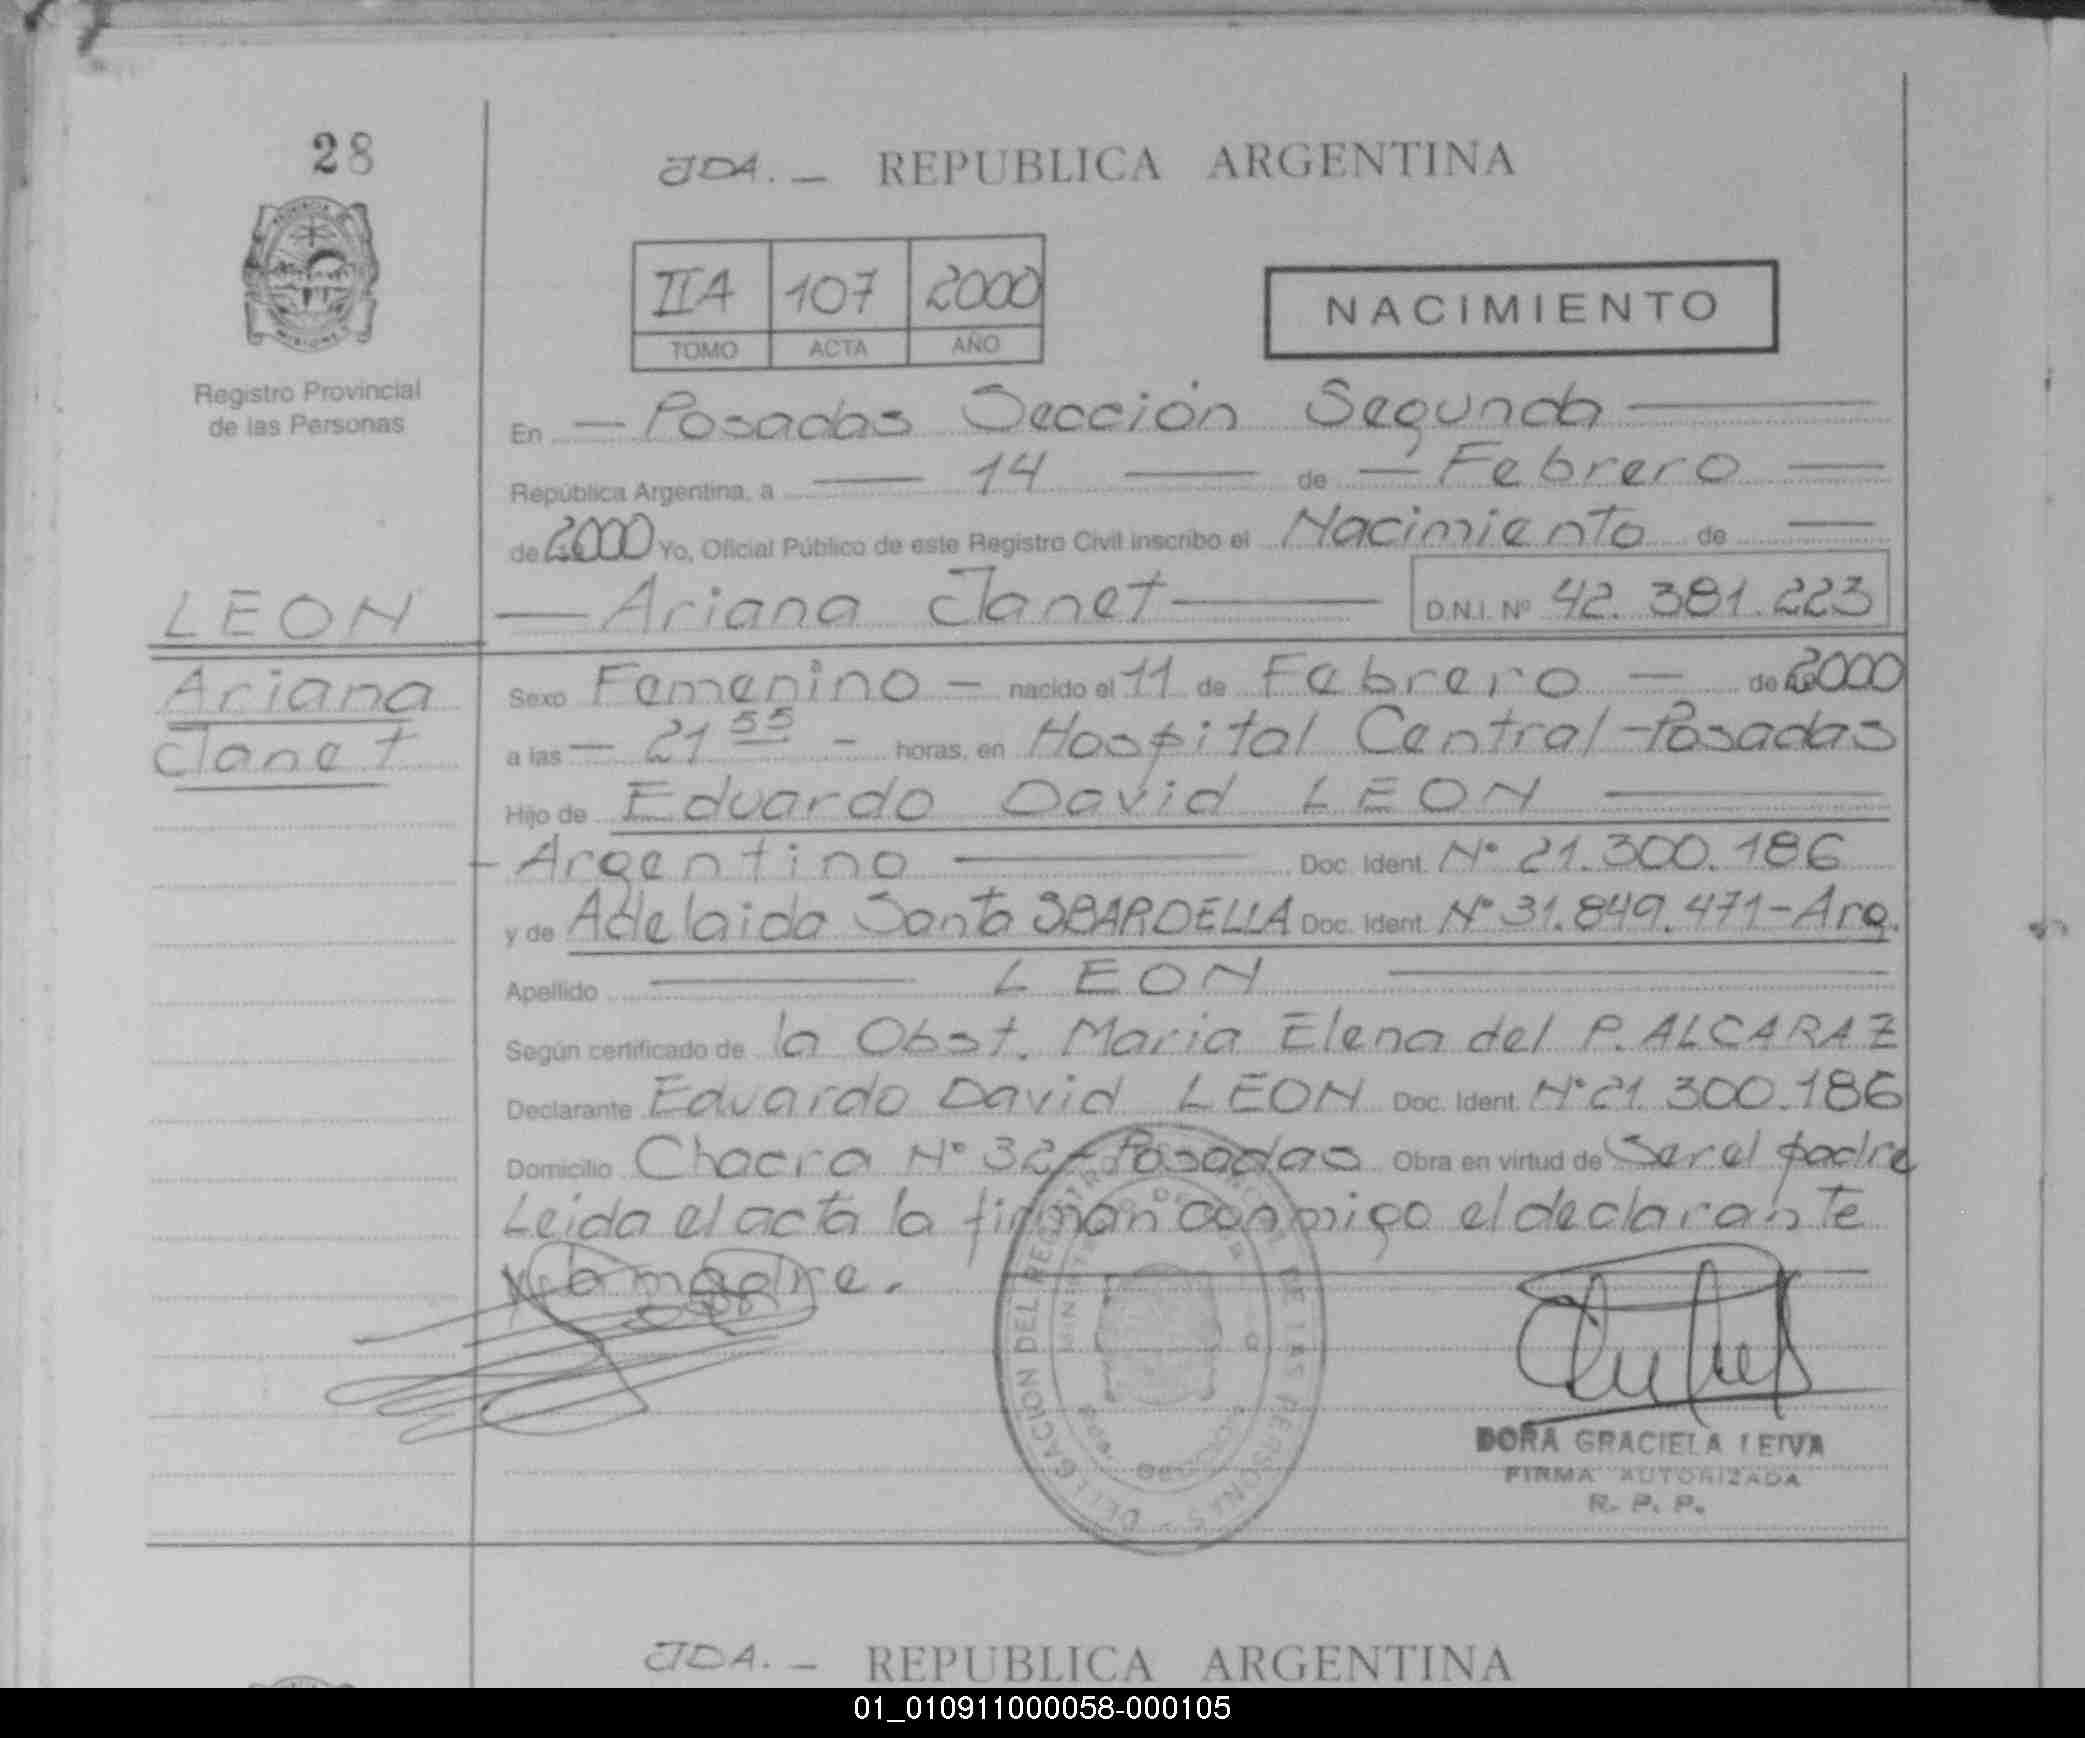 28
JDA. — REPUBLICA ARGENTINA
IIA 107 2000
TOMO ACTA AÑO
NACIMIENTO
Registro Provincial
de las Personas
En — Posadas Sección Segunda —
República Argentina, a — 14 — de — Febrero —
de 2000 Yo, Oficial Público de este Registro Civil inscribo el Nacimiento de —
LEON
— Ariana Janet — D.N.I. Nº 42.381.223
Ariana
Janet
Sexo Femenino — nacido el 11 de Febrero — de 2000
a las — 21 55 — horas, en Hospital Central - Posadas
Hijo de Eduardo David LEON —
- Argentino — Doc. Ident. Nº 21.300.186
y de Adelaida Santa SBARDELLA Doc. Ident. Nº 31.849.471 - Arg.
Apellido — LEON —
Según certificado de la Obst. Maria Elena del P. ALCARAZ
Declarante Eduardo David LEON Doc. Ident. Nº 21.300.186
Domicilio Chacra Nº 32 - Posadas Obra en virtud de Ser el padre
Leida el acta la firman conmigo el declarante
y la madre. —
DELEGACION DEL REGISTRO DE LAS PERSONAS
DORA GRACIELA LEIVA
FIRMA AUTORIZADA
R. P. P.
JDA. — REPUBLICA ARGENTINA
01_010911000058-000105